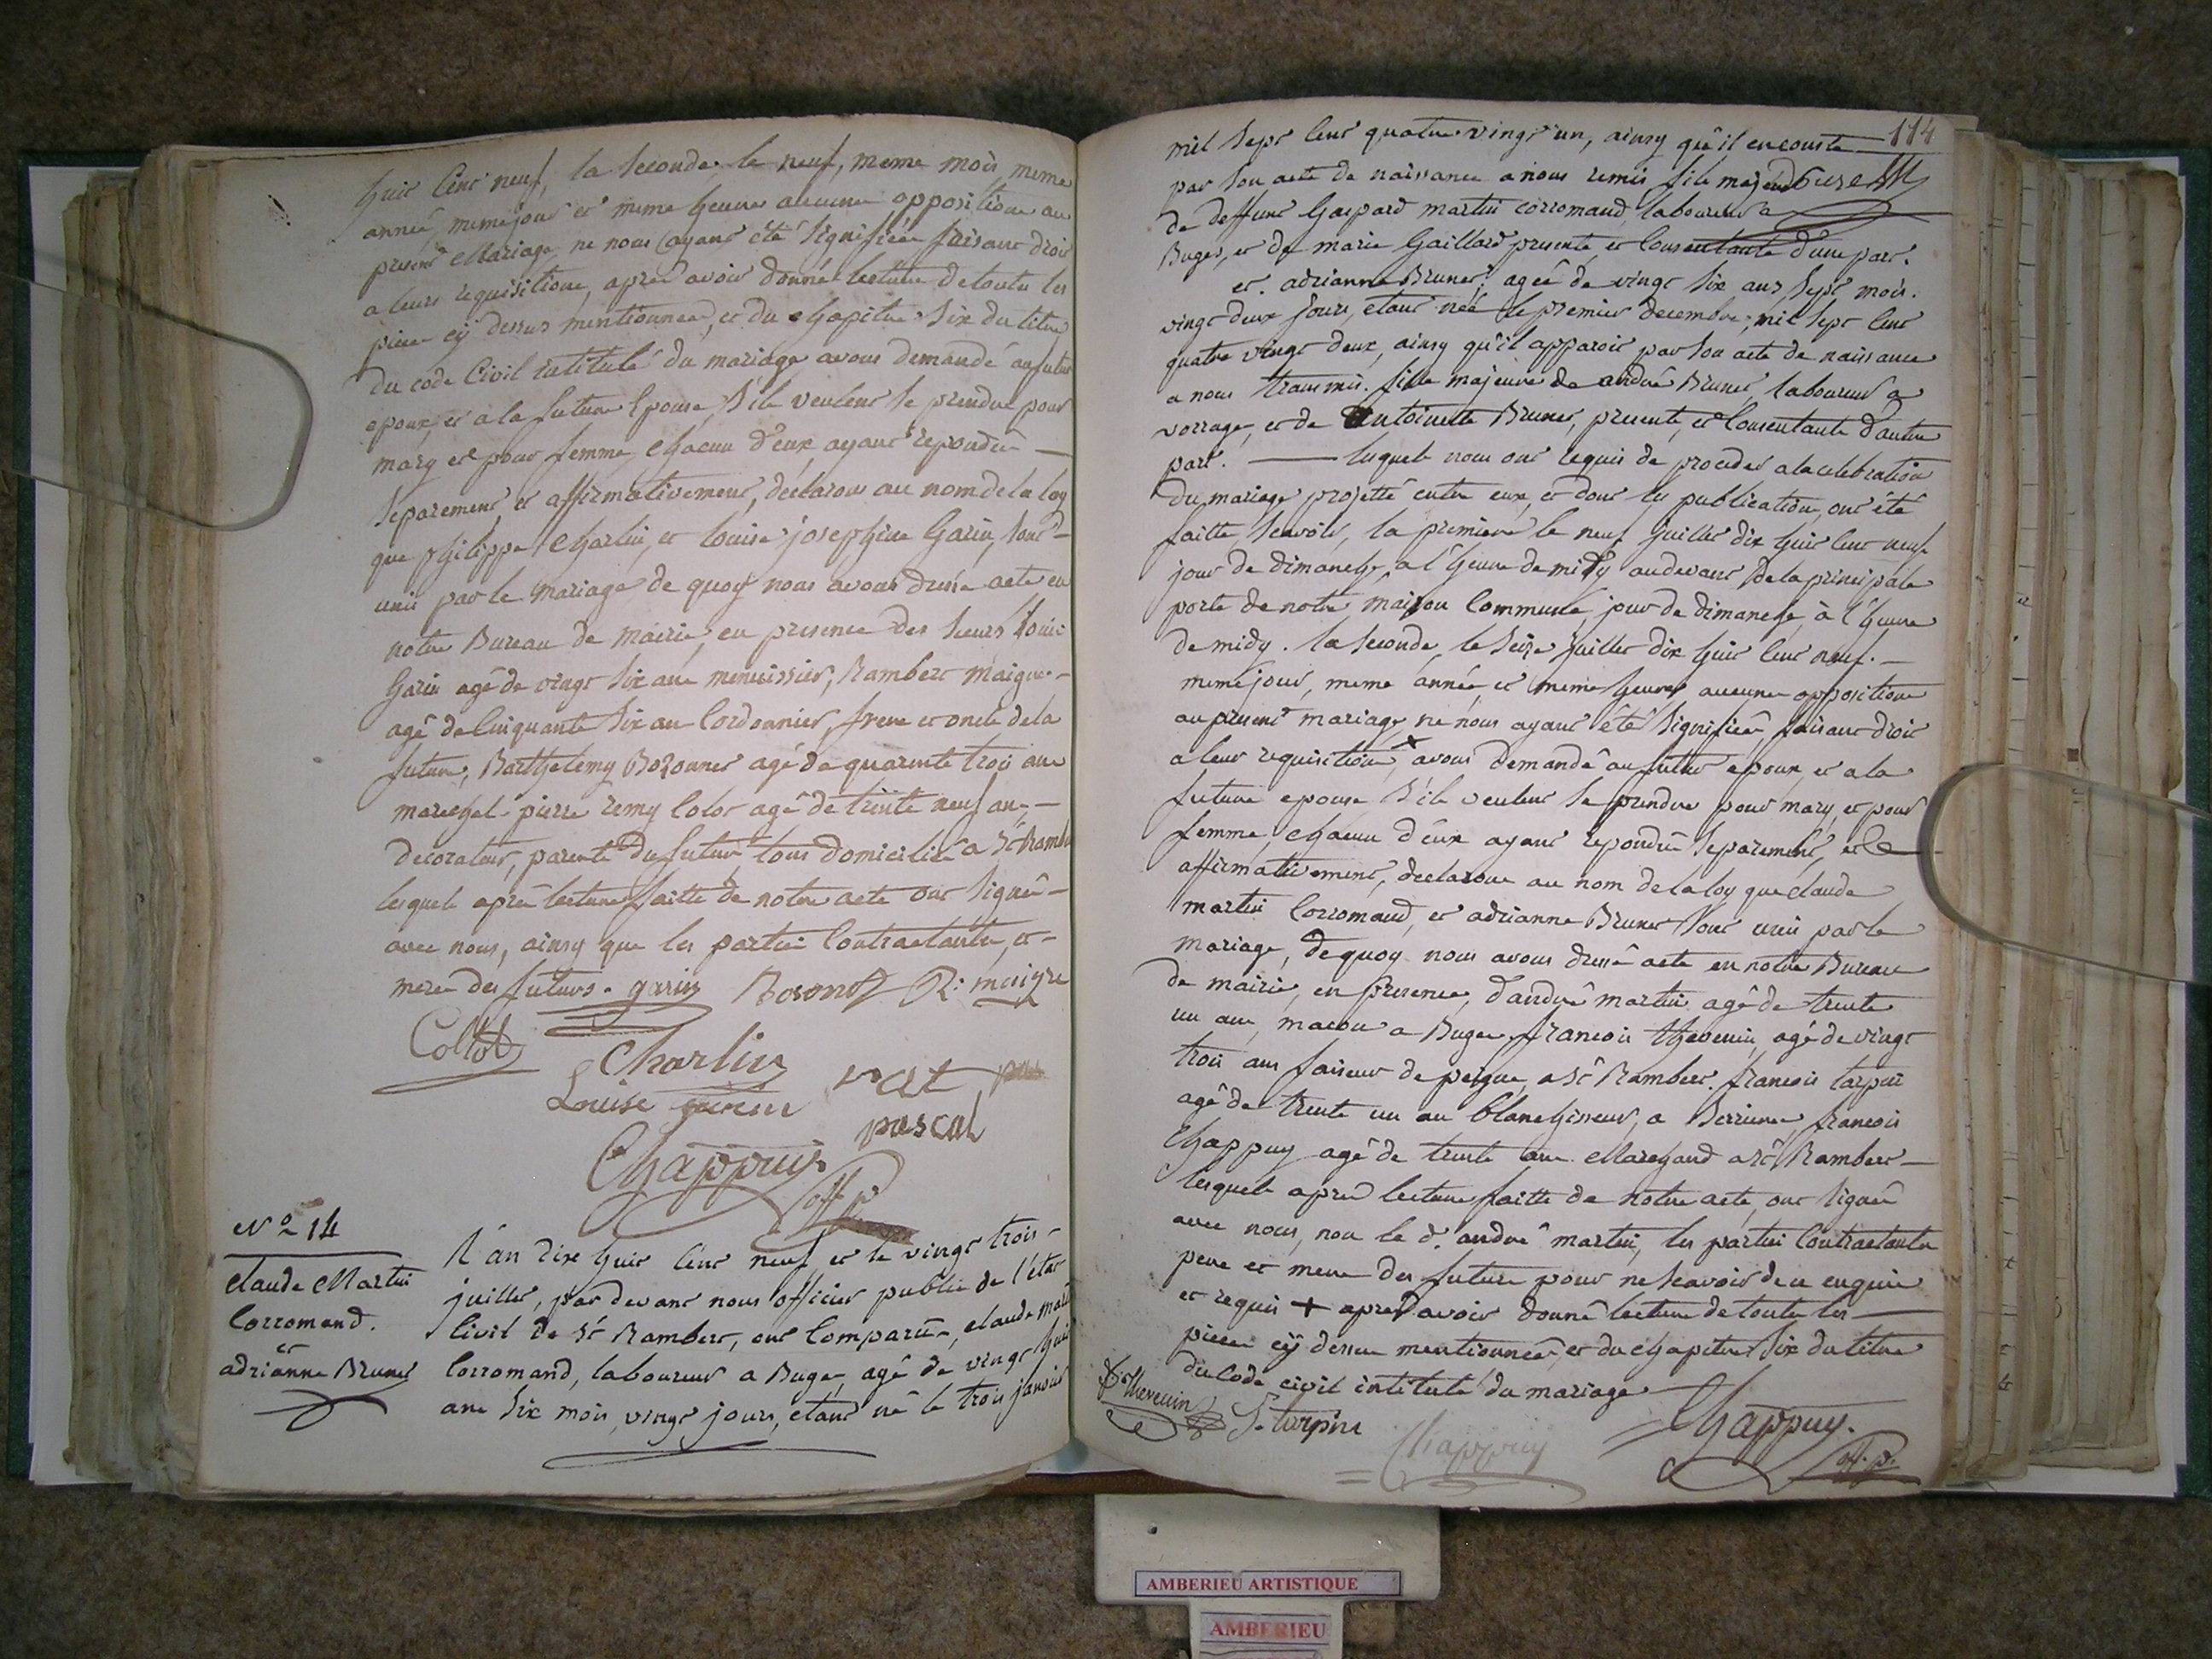 huit Cent neuf, la Seconde le neuf, meme mois, meme
année, meme jour et meme heure aucune opposition au
present Mariage ne nous ayant été Signifiée faisant droit
a leurs requisitions, après avoir donné lecture de toutes les
pieces cy dessus mentionnées, et du chapitre Six du titre
du code Civil intitulé du mariage avons demandé au futur
epoux, et a la future Epouse, S'ils veulent Se prendre pour
mary et pour femme, chacun d'eux ayant repondu —
Separement et affirmativement, declarons au nom de la loy
que philippe Charlin, et louise josephine Garin, Sont —
unis par le mariage de quoy nous avons dressé acte en
notre Bureau de mairie, en presence des Sieurs Louis
Garin agé de vingt Six ans menuissier, Rambert maigre —
agé de Cinquante Six ans Cordonnier, frere et oncle de la
future, Barthelemy Bozonnet agé de quarente trois ans
marechal pierre remy Colot agé de trente neuf ans —
decorateur, parents du futur tous domiciliés a St Rambert
lesquels après lecture faitte de notre acte ont Signés —
avec nous, ainsy que les parties Contractantes, et —
meres des futurs. garin Bosonet R: maigre
Collot Charlin
Louise garin vat
pascal
Chappuy
off. p.
N° 14
Claude Martin
Corromand.
et
adrianne Brunet
L'an dix huit Cent neuf et le vingt trois —
juillet, par devant nous officier public de l'état
Civil de St Rambert, ont Comparus, claude martin
Corromand, laboureur a Buges, agé de vingt huit
ans Six mois, vingt jours, etant né le trois janvier
114
mil Sept Cent quatre vingt un, ainsy qu'il en conste —
par Son acte de naissance a nous remis fils majeur
de deffunt Gaspard martin corromand laboureur a
Buges, et de marie Gaillard presente et Consentante d'une part.
et. adrianne Brunet agée de vingt Six ans Sept mois.
vingt deux jours, etant née le premier decembre, mil Sept Cent
quatre vingt deux, ainsy qu'il apparoit par Son acte de naissance
a nous transmis. fille majeure de andré Brunet, laboureur a
vorrage, et de Antoinette Brunet, presents, et Consentants d'autre
part. — lesquels nous ont requis de proceder a la celebration
du mariage projetté entre eux, et dont les publications, ont été
faittes Scavoir, la premiere le neuf juillet dix huit Cent neuf
jour de dimanche, a l'heure de midy au devant de la principale
porte de notre maison Commune, jour de dimanche, à l'heure
de midy. la Seconde, le Seize juillet dix huit Cent neuf. —
meme jour, meme année et meme heure, aucune opposition
au present mariage ne nous ayant été Signifiée, faisant droit
a leur requisition + avons demandé au futur epoux, et a la
future epouse S'ils veulent Se prendre pour mary, et pour
femme, chacun d'eux ayant repondu Separement, et
affirmativement, declarons au nom de la loy que claude
martin Corromand, et adrianne Brunet Sont unis par le
mariage, de quoy nous avons dressé acte en notre Bureau
de mairie, en presence, d'andré martin agé de trente
un ans, macon a Buges, francois thevenin, agé de vingt
trois ans faiseur de peigne, a St Rambert. francois turpin
agé de trente un ans blanchisseur, a Serrieres, francois
Chappuy agé de trente ans Marchand a St Rambert —
lesquels après lecture faitte de notre acte, ont Signés
avec nous, non le d. andré martin, les parties Contractantes
pere et mere des futurs pour ne Scavoir de ce enquis
et requis + après avoir donné lecture de toutes les —
pieces cy dessus mentionnées, et du chapitre Six du titre
du Code civil intitulé du mariage
f. thevenin f. turpin Chappuy Chappuy.
off. p.
AMBERIEU ARTISTIQUE
AMBERIEU